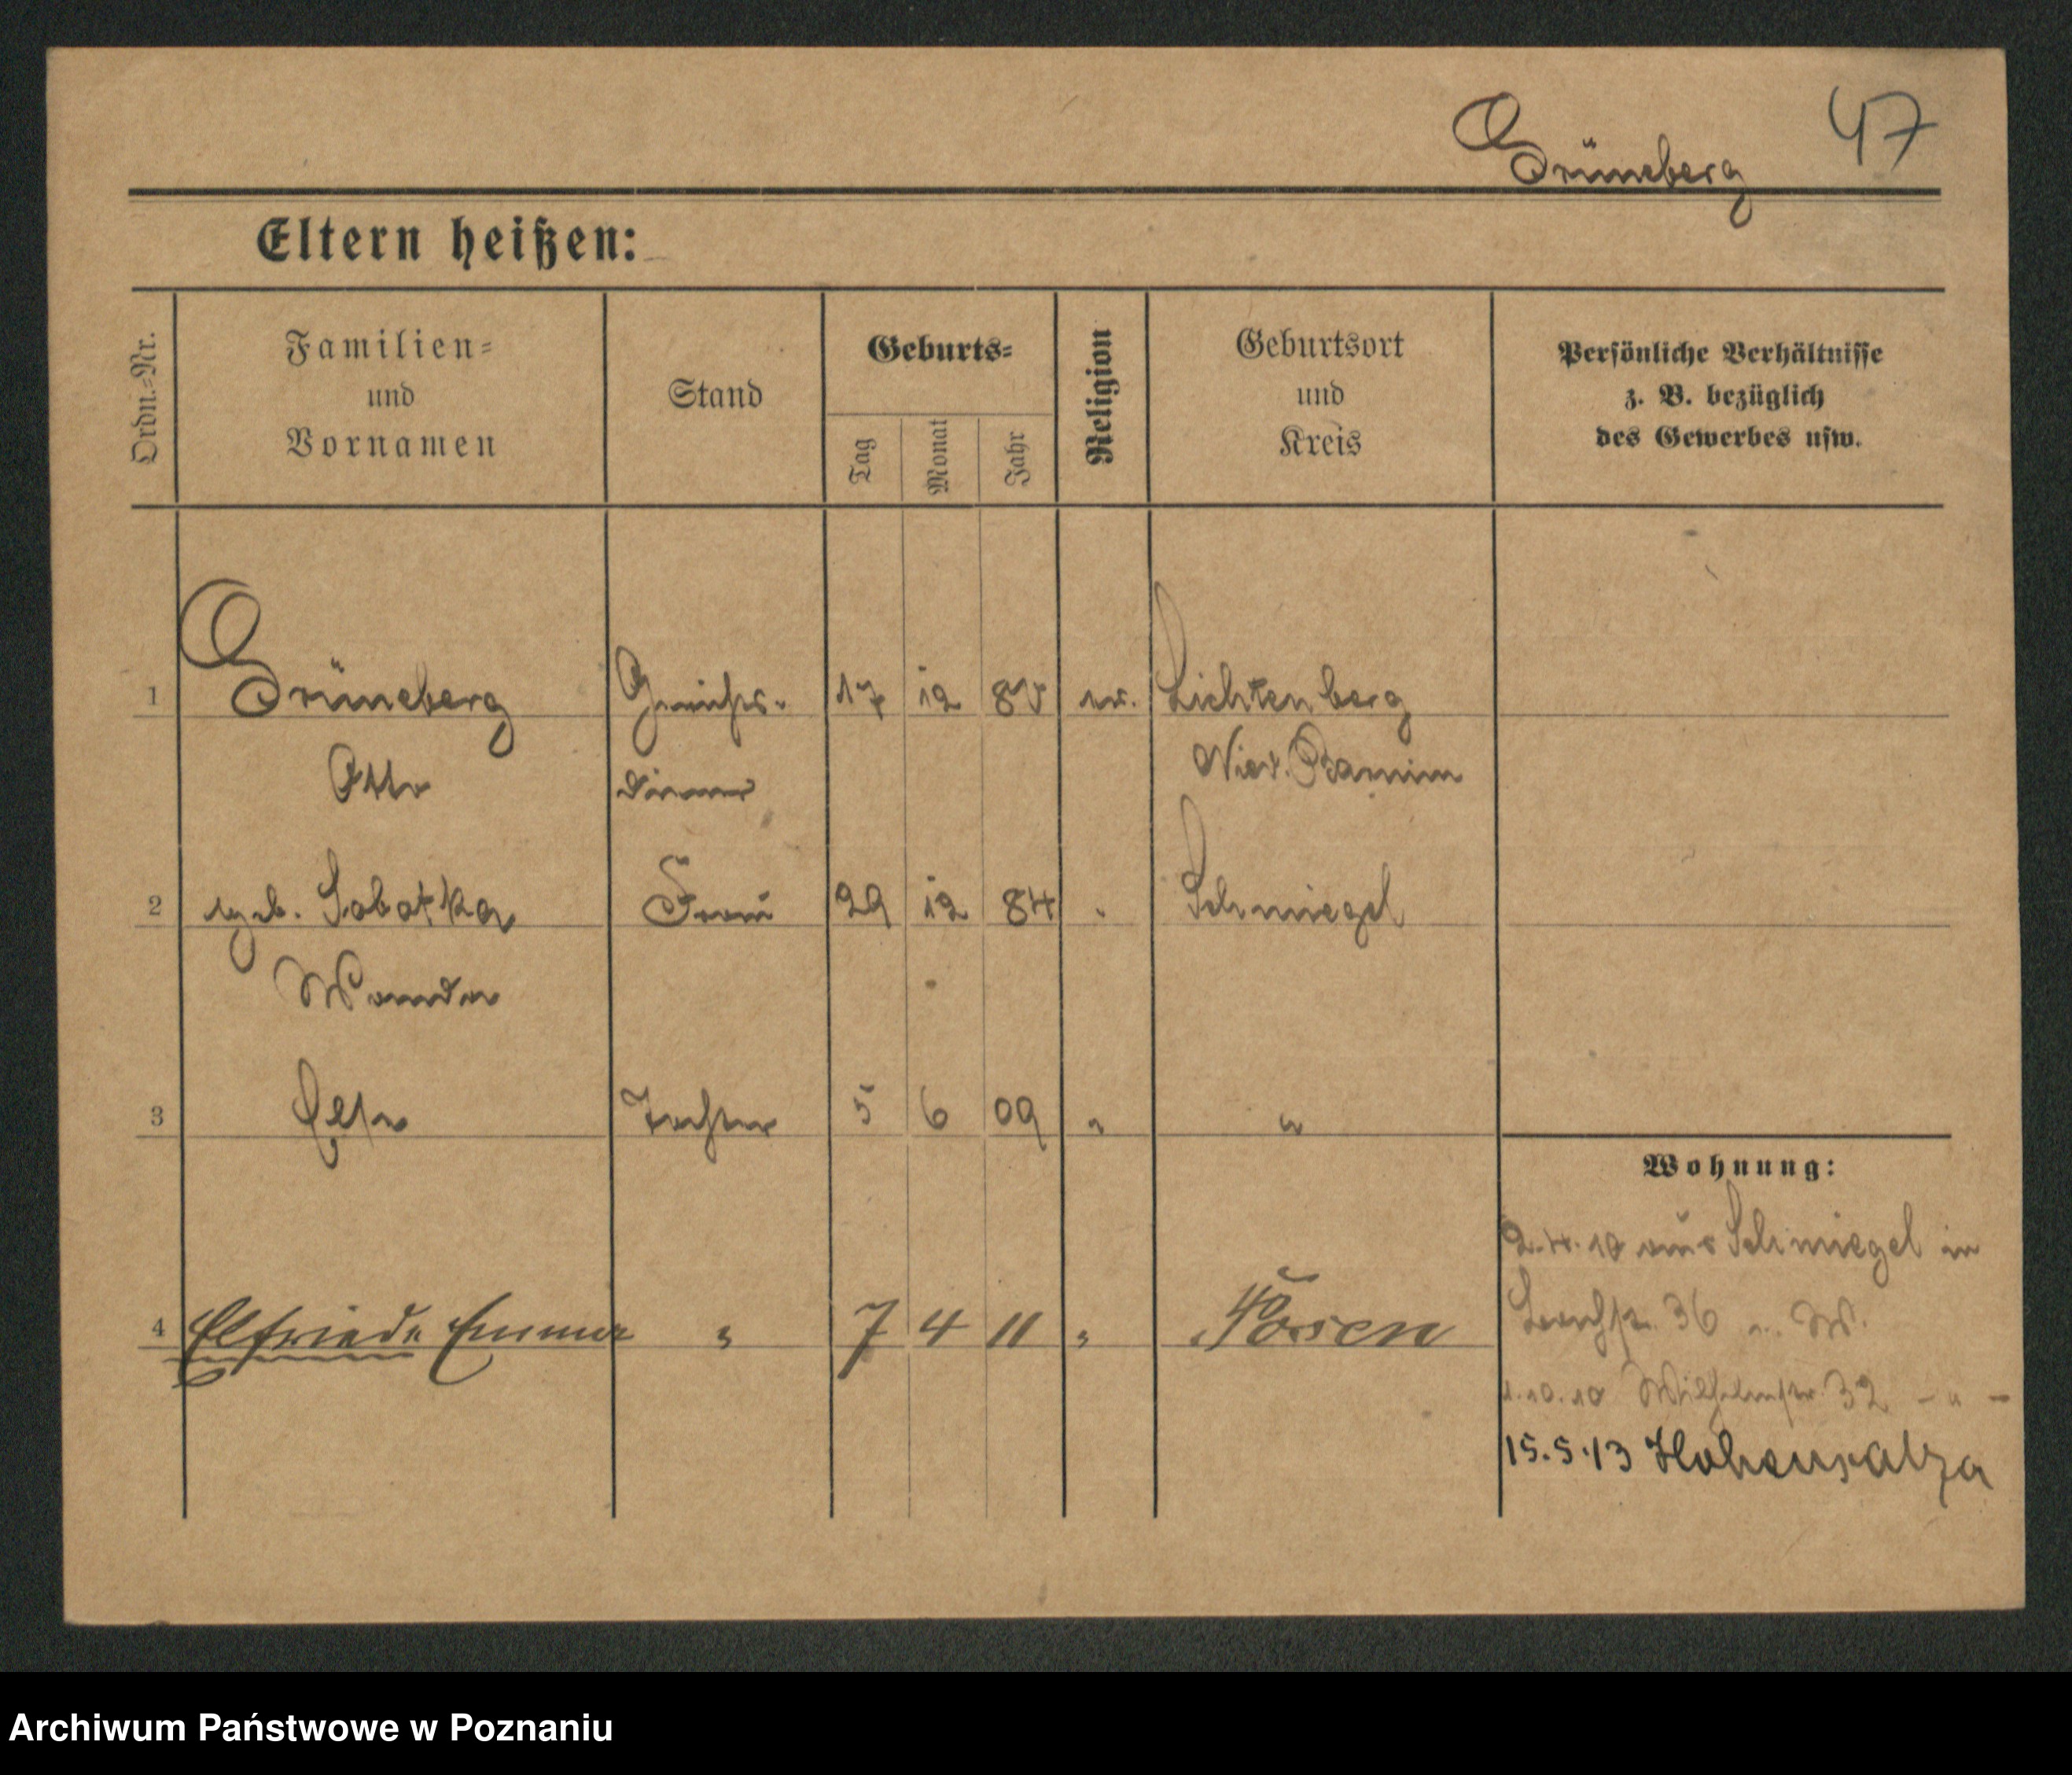 Grüneberg 47
Eltern heißen:
Ordn.-Nr.
Familien-
und
Vornamen
Stand
Geburts-
Tag
Monat
Jahr
Religion
Geburtsort
und
Kreis
Persönliche Verhältnisse
z. B. bezüglich
des Gewerbes usw.
1 Grüneberg Gerichts- 17 12 ev. Lichtenberg
Otto diener Nied. Barnim
2 geb. Sobotka Frau 29 12 84 " Schmiegel
Wanda
3 Tochter 5 6 09 " "
Wohnung:
2.4.10 aus Schmiegel in
36 W.
4 Elfriede Emma " 7 4 11 " Posen
1.10.10 Wilhelmstr. 32 - " -
15.5.13 Hohensalza
Archiwum Państwowe w Poznaniu